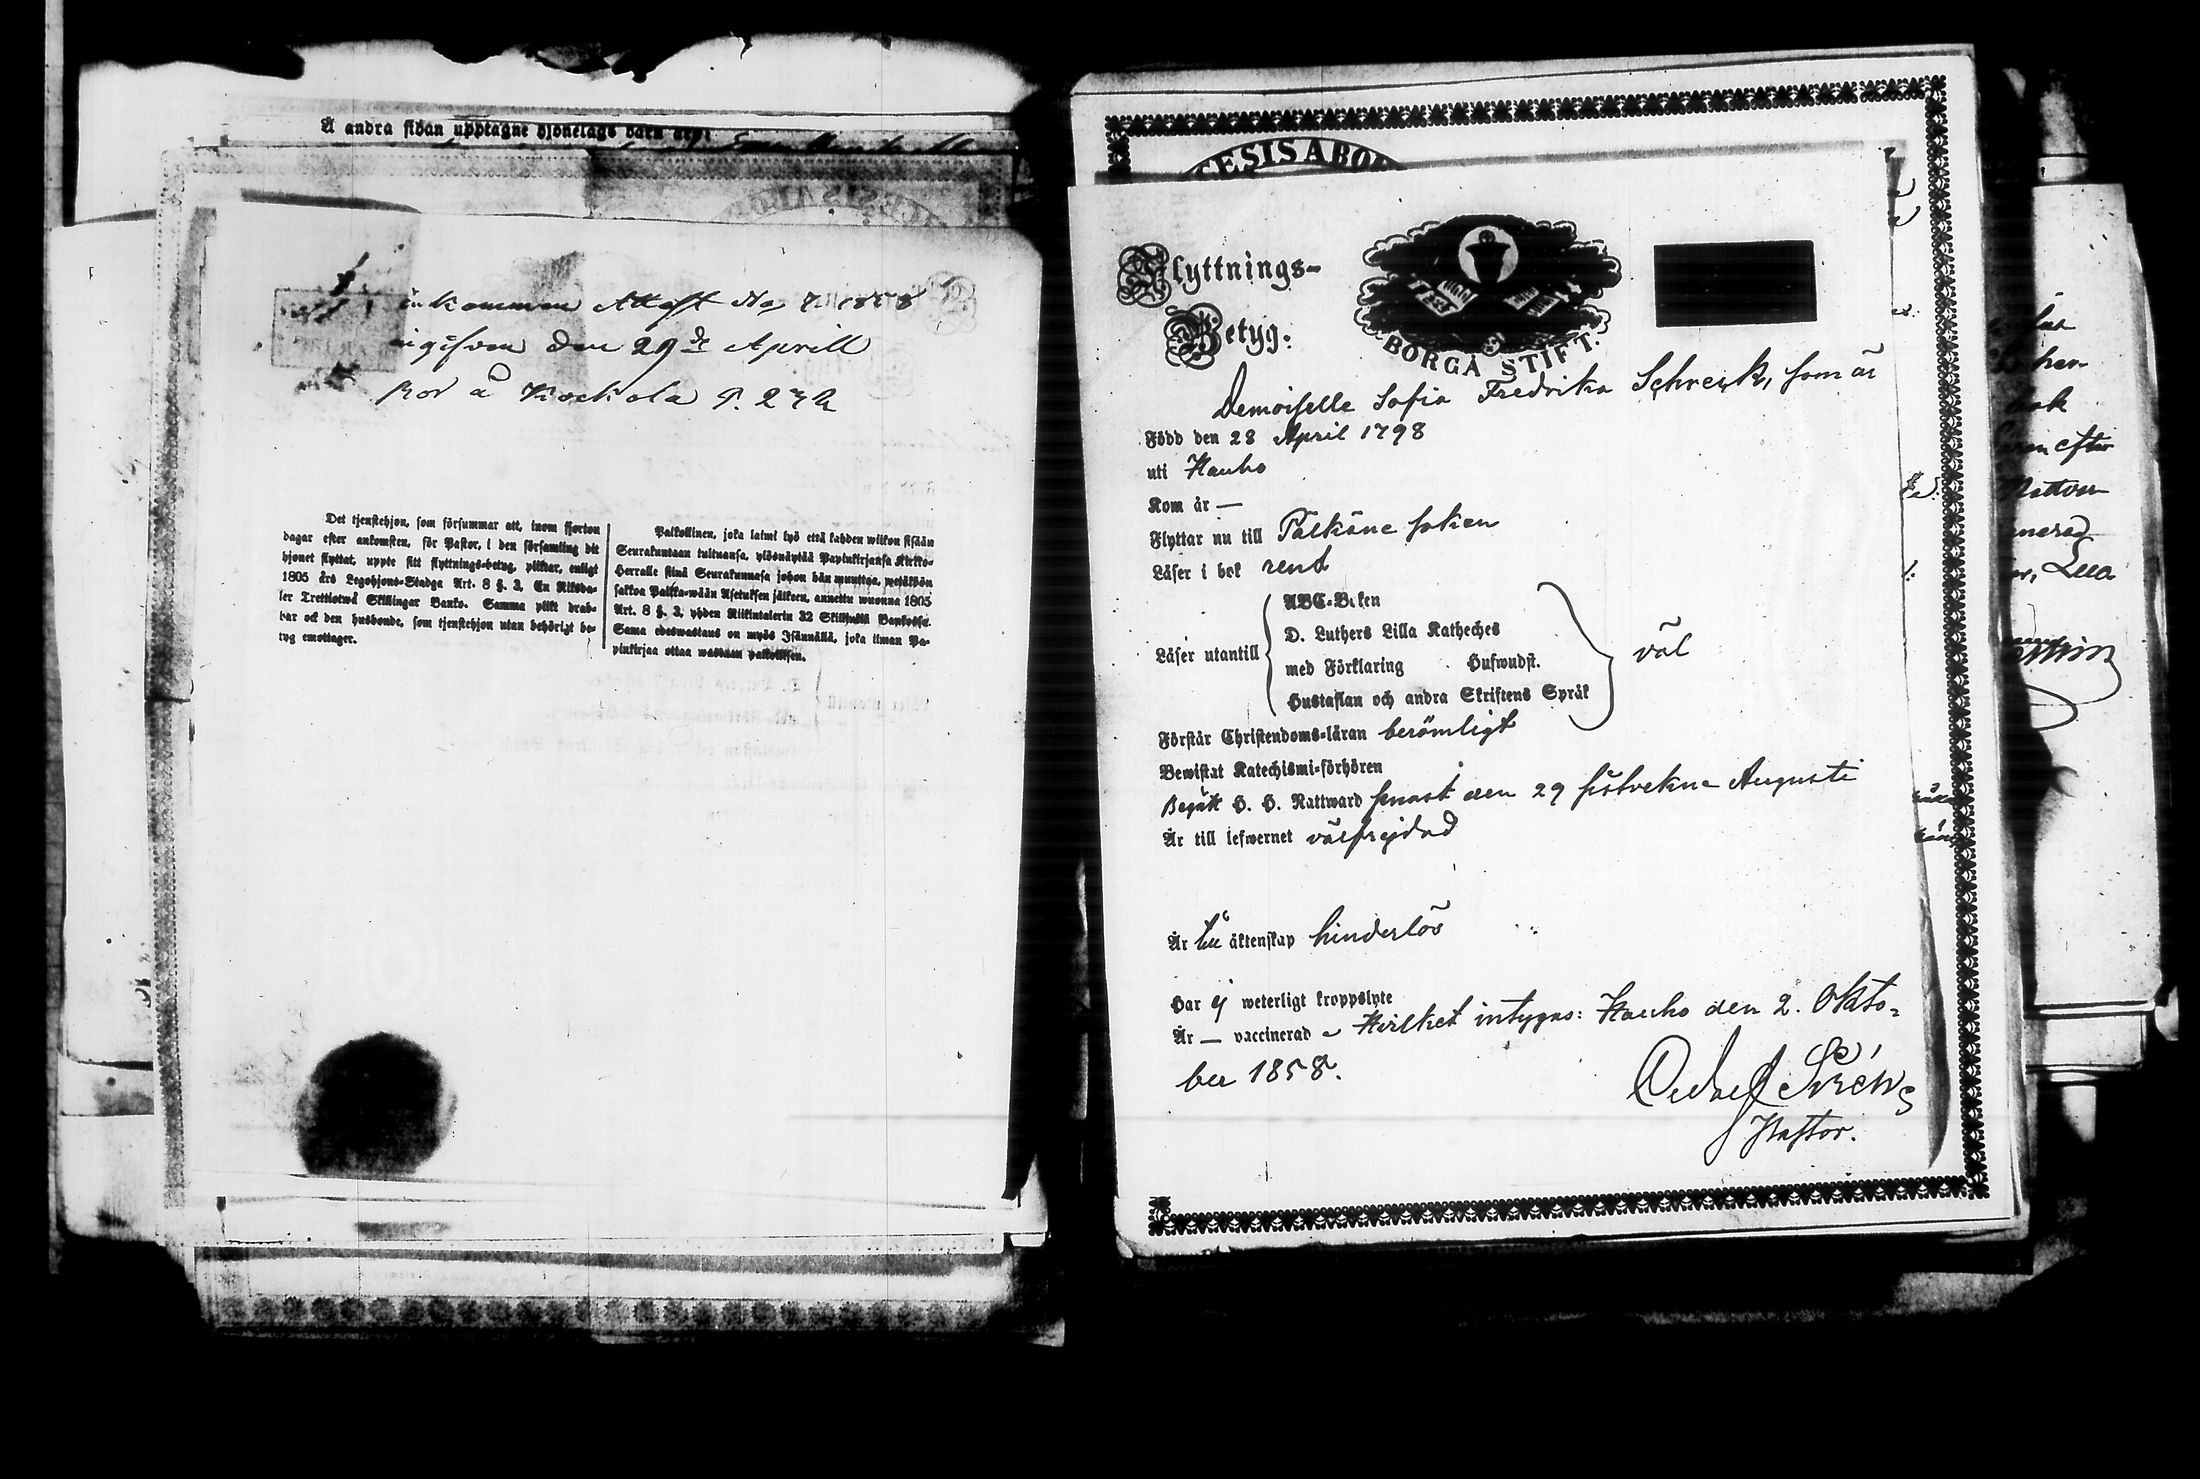 Å andra sidan upptagne hjonelags barn äro:
inkommen Attest No 7. 1858
ingifven den 29de Aprill
bor å Kockola P. 272
Det tjenstehjon, som försummar att, inom fjorton
dagar efter ankomsten, för Pastor, i den församling dit
hjonet flyttat, uppte sitt flyttnings-betyg, pliktar, enligt
1805 års Legohjons-Stadga Art. 8 §. 3, En Riksda-
ler Trettiotwå Skillingar Banko. Samma plikt drab-
bar ock den husbonde, som tjenstehjon utan behörigt be-
tyg emottager.
Palkollinen, joka laimi lyö että kahden wiikon sisään
Seurakuntaan tultuansa, ylösnäyttää Papinkirjansa Kirkko-
Herralle siinä Seurakunnasa johon hän muuttaa, wetäköön
sakkoa Palkka-wään Asetuksen jälkeen, annettu wuonna 1805
Art. 8 §. 3, yhden Riikintalerin 32 Skillinkiä Bankossa.
Sama edeswastaus on myös Isännällä, joka ilman Pa-
pinkirjaa ottaa wastaan palkollisen.
CESIS ABO
Flyttnings-
Betyg.
BORGÅ STIFT.
Demoiselle Sofia Fredrika Schreck, som är
Född den 28 April 1798
uti Hauho
Kom år —
Flyttar nu till Pälkäne socken
Läser i bok rent
Läser utantill
ABC-Boken
D. Luthers Lilla Katheches
med Förklaring Hufwudst.
Hustaflan och andra Skriftens Språk
väl
Förstår Christendoms-läran berömligt
Bewistat Katechismi-förhören
Begått H. H. Nattward senast den 29 sistvekne Augusti
Är till lefwernet välfrejdad
Är till äktenskap hinderlös
Har ej weterligt kroppslyte
Är — vaccinerad Hvilket intygas: Hauho den 2. Okto-
ber 1858.
Pastor.